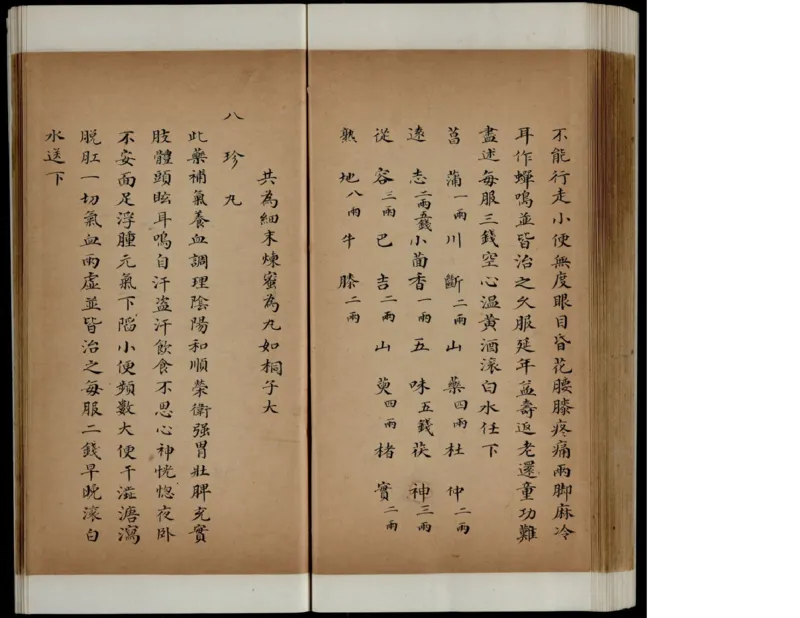 不能行走小便無度眼目昏花腰膝疼痛兩脚麻冷
耳作蟬鳴並皆治之久服延年益壽返老還童功難
盡述每服三錢空心溫黃酒滚白水任下
菖蒲一兩川斷二兩山藥四兩杜仲二兩
遠志二兩五錢小茴香一兩五味五錢茯神三兩
從容三兩巴吉二兩山萸四兩楮實二兩
熟地八兩牛膝二兩
共為細末煉蜜為丸如桐子大
八珍丸
此藥補氣養血調理陰陽和順榮衛强胃壯脾充實
肢體頭眩耳鳴自汗盗汗飲食不思心神恍惚夜卧
不安面足浮腫元氣下陷小便頻數大便干滋溏瀉
脱肛一切氣血兩虛並皆治之每服二錢早晚滚白
水送下